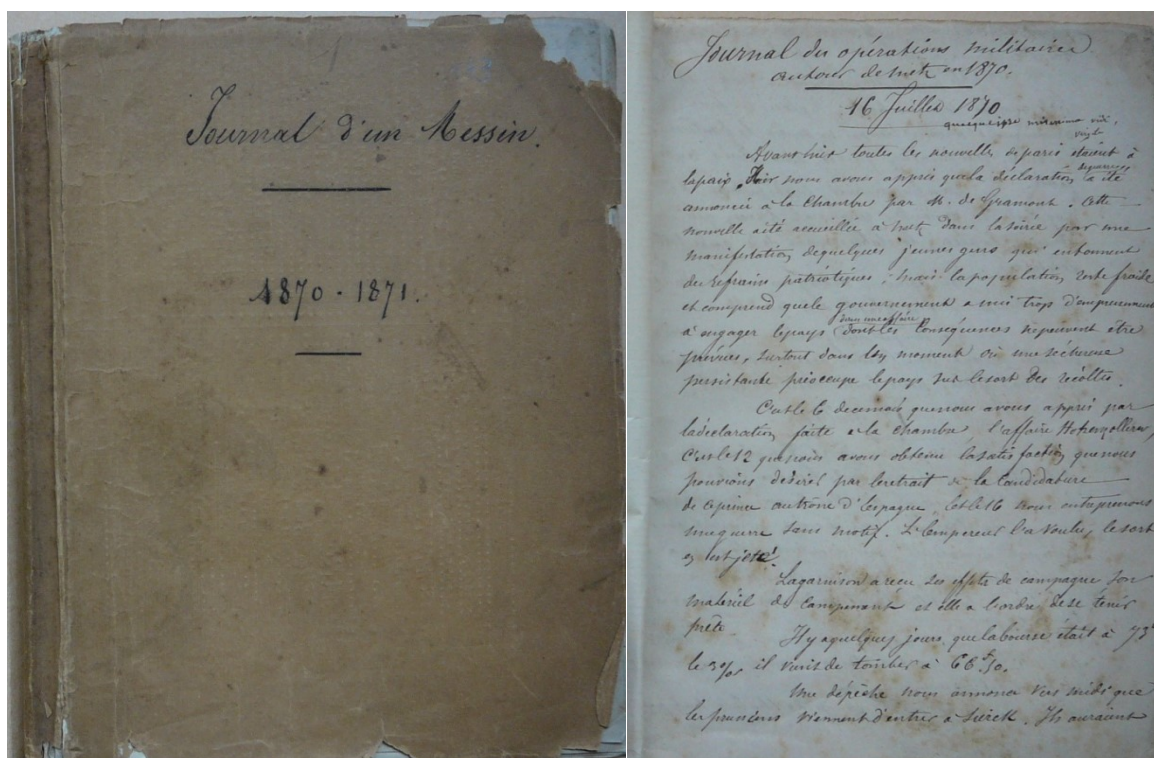 Journal d'un Messin.
1870 - 1871.
Journal des opérations militaires
autour de Metz en 1870.
16 Juillet 1870
Avant hier toutes les nouvelles de paris étaient à
la paix. Hier nous avons appris que la déclaration a été
annoncée à la Chambre par M. de Gramont. Cette
nouvelle a été accueillie à Metz dans la soirée par une
manifestation de quelques jeunes gens qui entonnent
des refrains patriotiques ; mais la population reste froide
et comprend que le gouvernement a mis trop d'empressement
à engager le pays dans une affaire dont les conséquences ne peuvent être
prévues, surtout dans un moment où une sécheresse
persistante préoccupe le pays sur le sort des récoltes.
C'est le 6 de ce mois que nous avons appris par
la déclaration faite à la Chambre, l'affaire Hohenzollern,
C'est le 12 que nous avons obtenu la satisfaction que nous
pouvions désirer par le retrait de la Candidature
de ce prince au trône d'Espagne, et le 16 nous entreprenons
une guerre sans motif. L'Empereur l'a voulu, le sort
en est jeté !
La garnison a reçu ses effets de campagne son
matériel de Campement et elle a l'ordre de se tenir
prête.
Il y a quelques jours que la bourse était à 73f
le 3% il vient de tomber à 66f,70.
Une dépêche nous annonce vers midi que
les prussiens viennent d'entrer à Sierck. Ils auraient